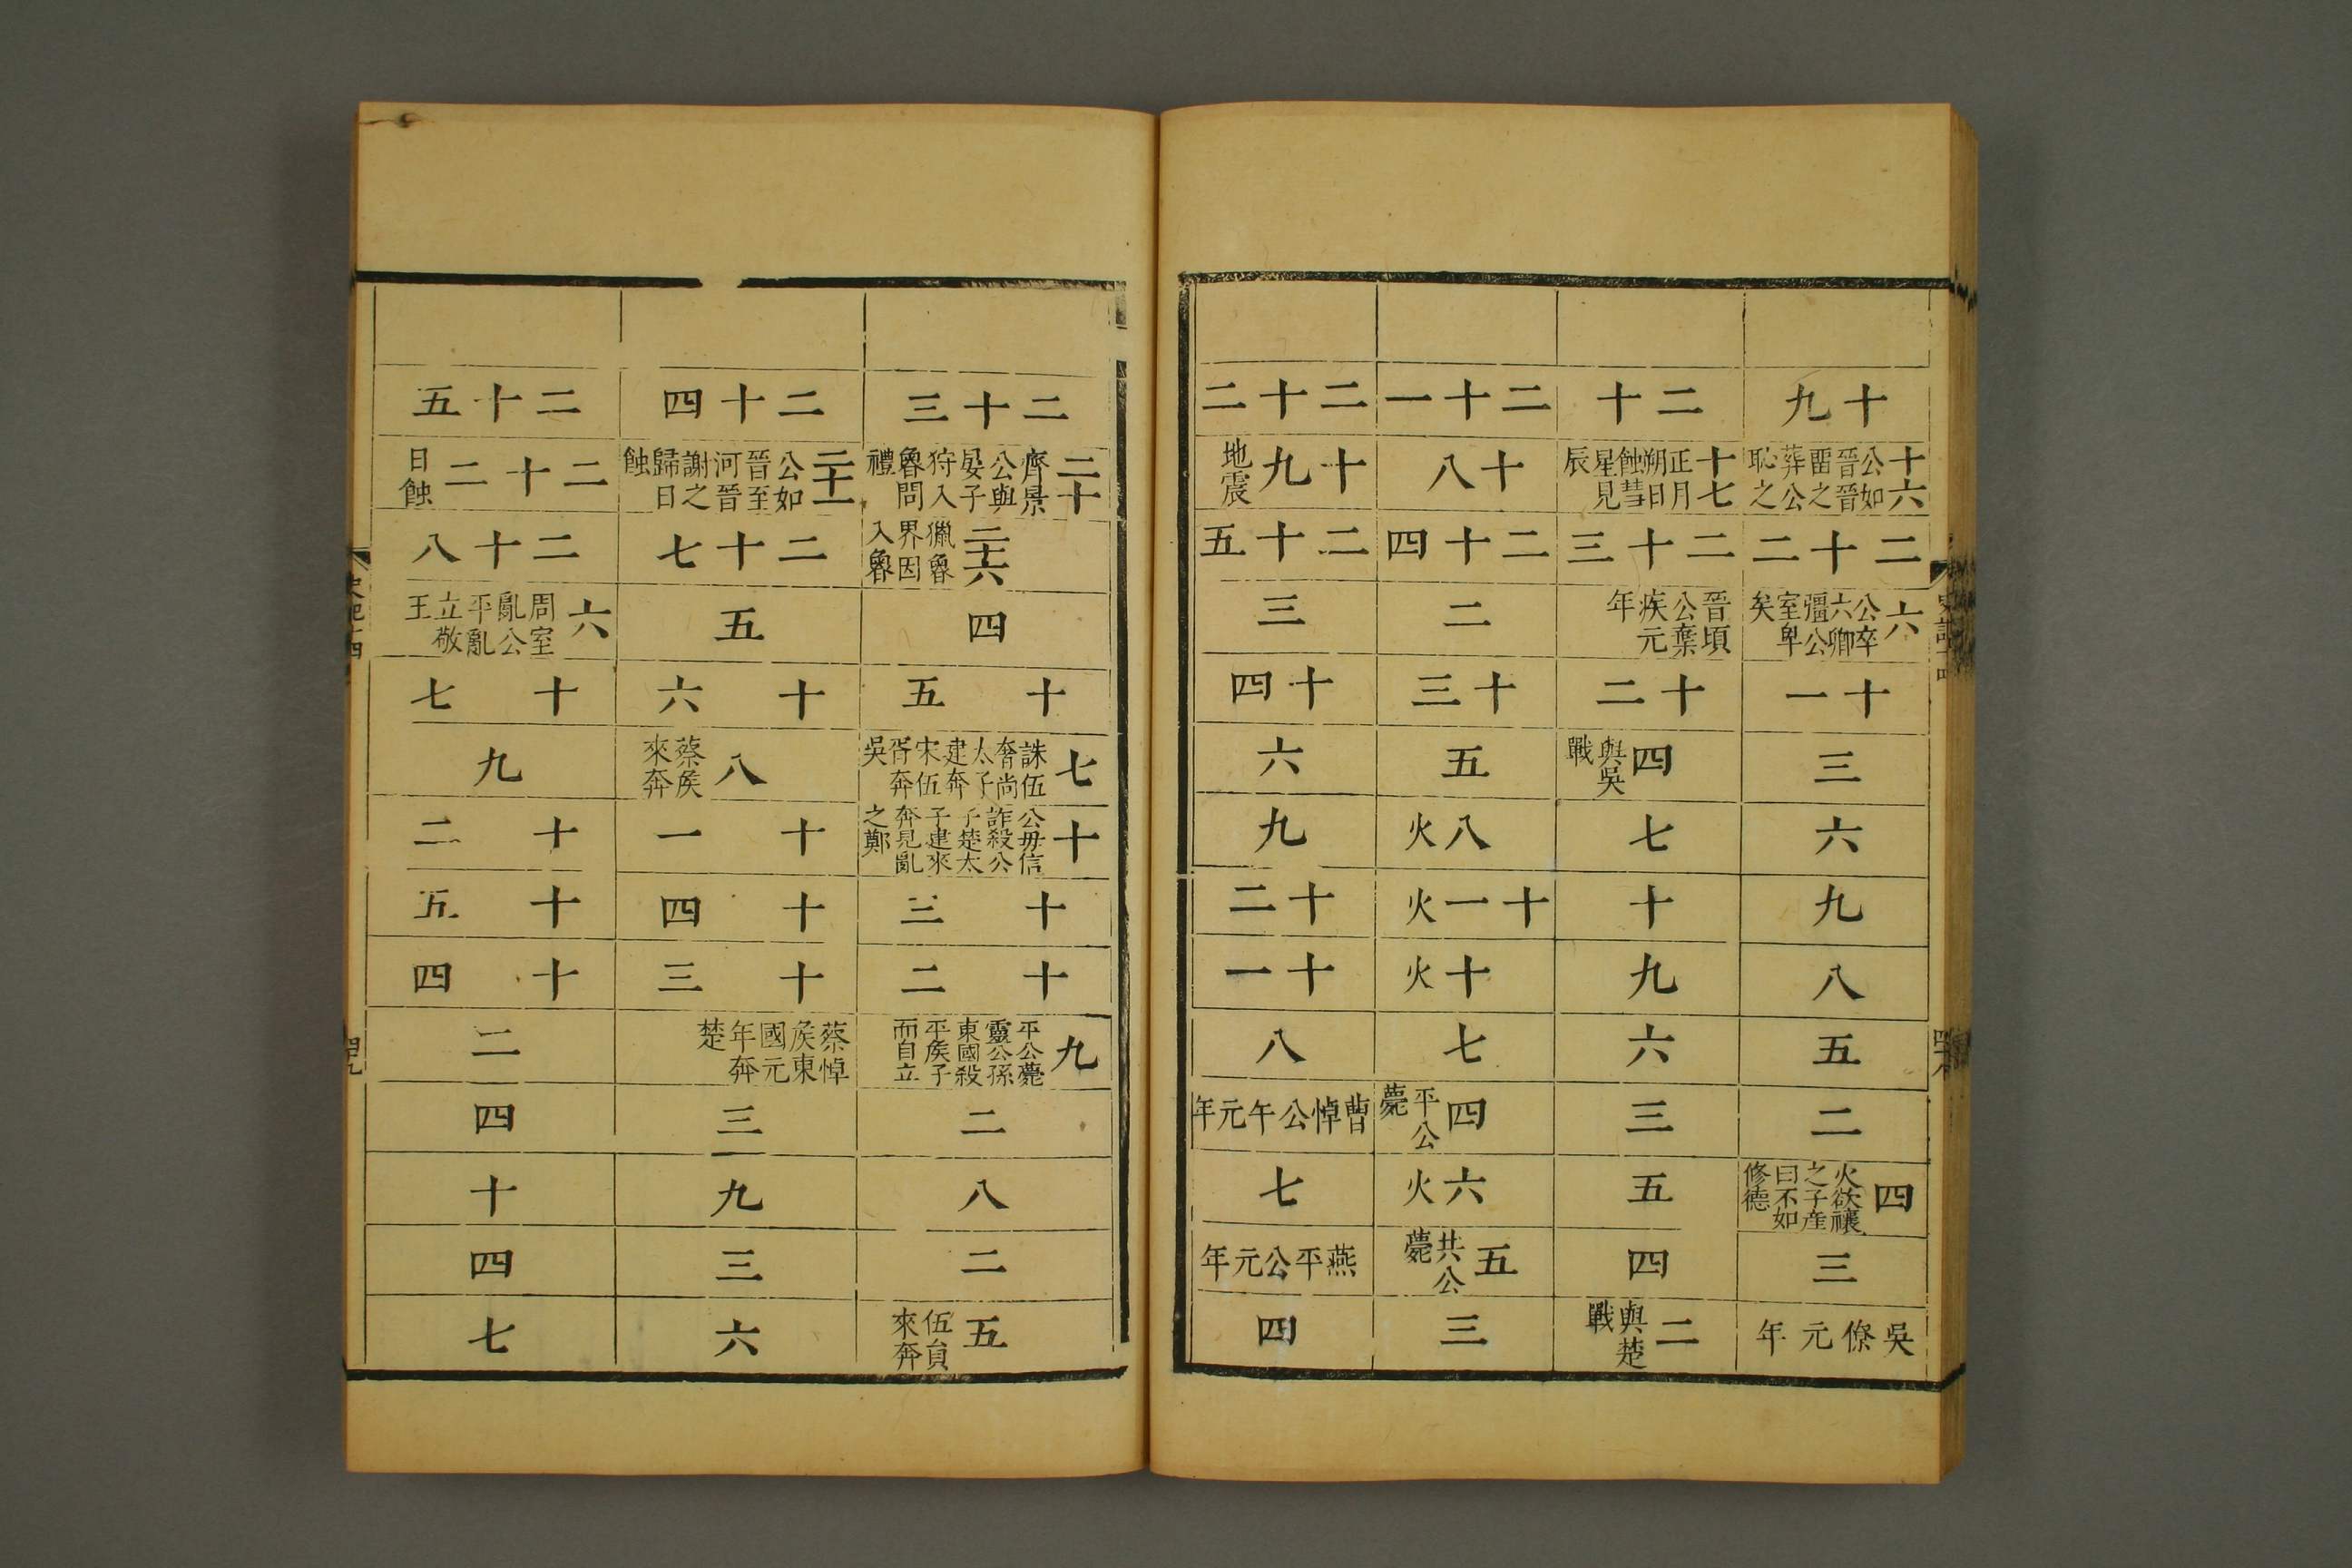 十九
十六公如晉晉畱之葬公恥之
二十二
六公卒六卿彊公室卑矣
十一
三
六
九
八
五
二
四火欲禳之子產曰不如修德
三
吳僚元年
二十
十七正月朔日蝕彗星見辰
二十三
晉頃公棄疾元年
十二
四與吳戰
七
十
九
六
三
五
四
二與楚戰
二十一
十八
二十四
二
十三
五
八火
十一火
十火
七
四平公薨
六火
五共公薨
三
二十二
十九地震
二十五
三
十四
六
九
十二
十一
八
曹悼公午元年
七
燕平公元年
四
二十三
二十齊景公與晏子狩入魯問禮
二十六獵魯界因入魯
四
十五
七誅伍奢尚太子建奔宋伍胥奔吳
十公毋信詐殺公子楚太子建來奔見亂之鄭
十三
十二
九平公薨靈公孫東國殺平侯子而自立
二
八
二
五伍員來奔
二十四
二十一公如晉至河晉謝之歸日蝕
二十七
五
十六
八蔡侯來奔
十一
十四
十三
蔡悼侯東國元年奔楚
三
九
三
六
二十五
二十二日蝕
二十八
六周室亂公平亂立敬王
十七
九
十二
十五
十四
二
四
十
四
七